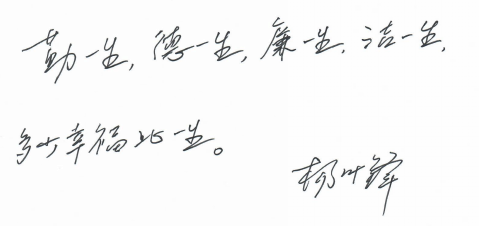 勤一生，德一生，廉一生，洁一生，
多少幸福此一生。
杨叶锋